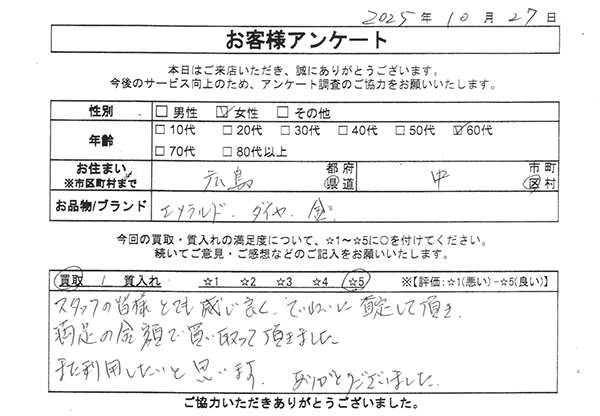 2025年 10月 27日
お客様アンケート
本日はご来店いただき、誠にありがとうございます。
今後のサービス向上のため、アンケート調査のご協力をお願いいたします。
性別 □男性 ☑女性 □その他
年齢 □10代 □20代 □30代 □40代 □50代 ☑60代
□70代 □80代以上
お住まい
※市区町村まで 広島 都府県道 中 市町区村
お品物/ブランド エメラルド、ダイヤ、金
今回の買取・質入れの満足度について、☆1～☆5に○を付けてください。
続いてご意見・ご感想などのご記入をお願いいたします。
買取 / 質入れ ☆1 ☆2 ☆3 ☆4 ☆5 ※【評価:☆1(悪い)－☆5(良い)】
スタッフの皆様とても感じ良く、ていねいに査定して頂き、
満足の金額で買い取って頂きました
また利用したいと思います。 ありがとうございました。
ご協力いただきありがとうございました。